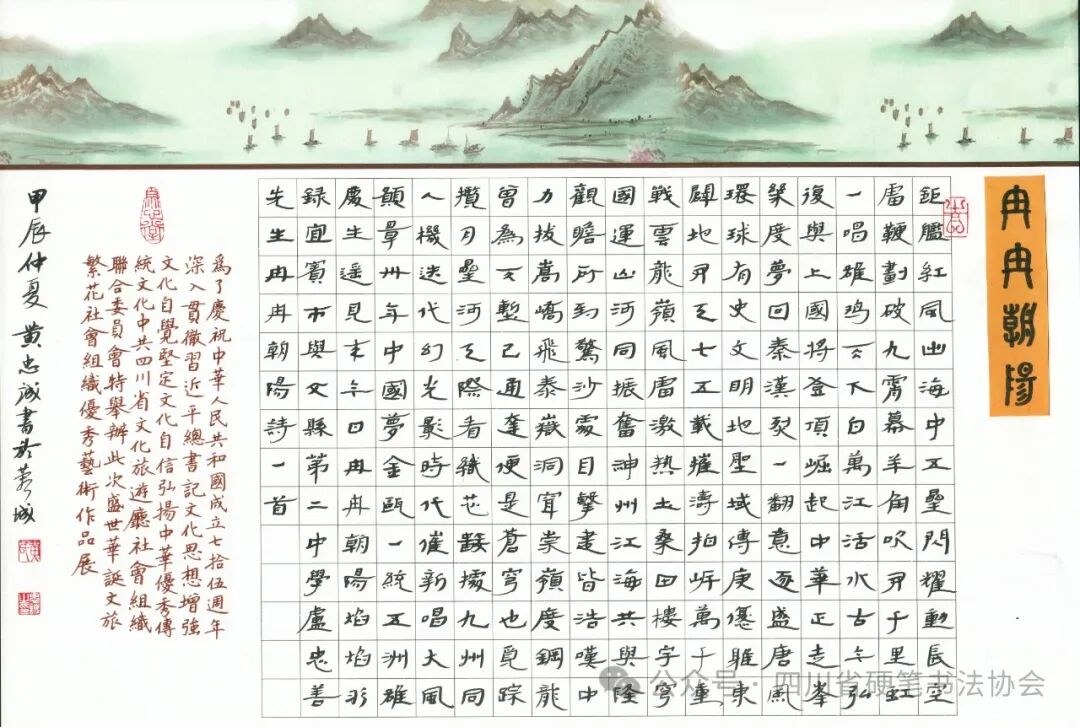 冉冉朝陽
鉅艦紅風出海中五星閃耀動辰空
雷鞭劃破九霄幕羊角吹開千里虹
一唱雄鸡天下白萬江活水古今弘
復興上國將登頂崛起中華正走峯
幾度夢回秦漢烈一翻意逐盛唐風
環球有史文明地聖域傳東
闢地開天七五載摧濤拍岸萬千重
戰雲龍嶺風雷激熱土桑田樓宇穹
國運山河同振奮神州江海共興隆
觀瞻所到驚沙處目擊盡皆浩嘆中
力拔嵩嶠飛泰嶽洞崇嶺度鋼龍
曾為天塹已通逵便是蒼穹也覓踪
攬月星河天際看織花九州同
人機迭代幻光影時代催新唱大風
年中國夢金甌一統五洲雄
慶生遥見今日冉冉朝陽焰焰彤
録宜賓市興文縣第二中學盧忠善
先生冉冉朝陽詩一首
爲了慶祝中華人民共和國成立七拾伍週年
深入貫徹習近平總書記文化思想增強
文化自覺堅定文化自信弘揚中華優秀傳
統文化中共四川省文化旅遊廳社會組織
聯合委員會特舉辦此次盛世華誕文旅
繁花社會組織優秀藝術作品展
甲辰仲夏黄忠诚書於蓉城
公众号·四川省硬笔书法协会